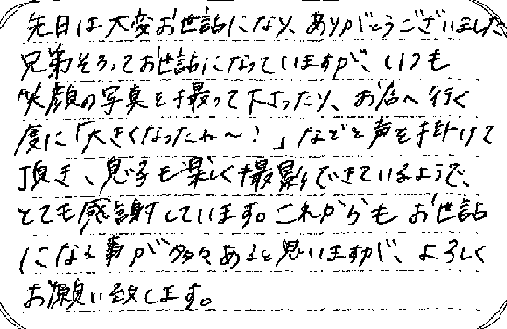 先日は大変お世話になり、ありがとうございました。
兄弟そろってお世話になっていますが、いつも
笑顔の写真を撮って下さったり、お店へ行く
度に「大きくなったね～！」などと声を掛けて
頂き、息子も楽しく撮影できているようで、
とても感謝しています。これからもお世話
になる事が多々あると思いますが、よろしく
お願い致します。